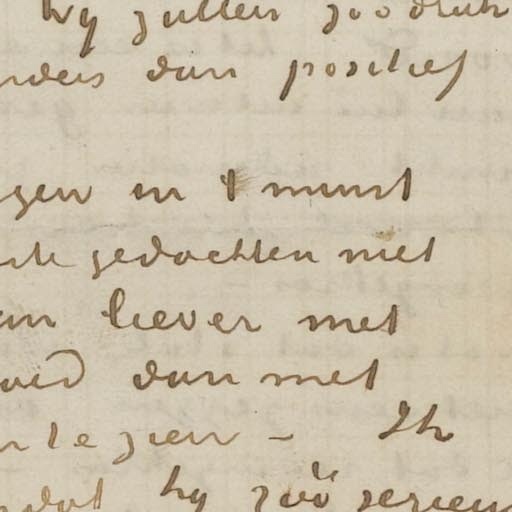 hy zullen zoo druk
nders dan positief
gen in t minst
gedachten met
liever met
goed dan met
n te zien - Ik
dat hy zoo